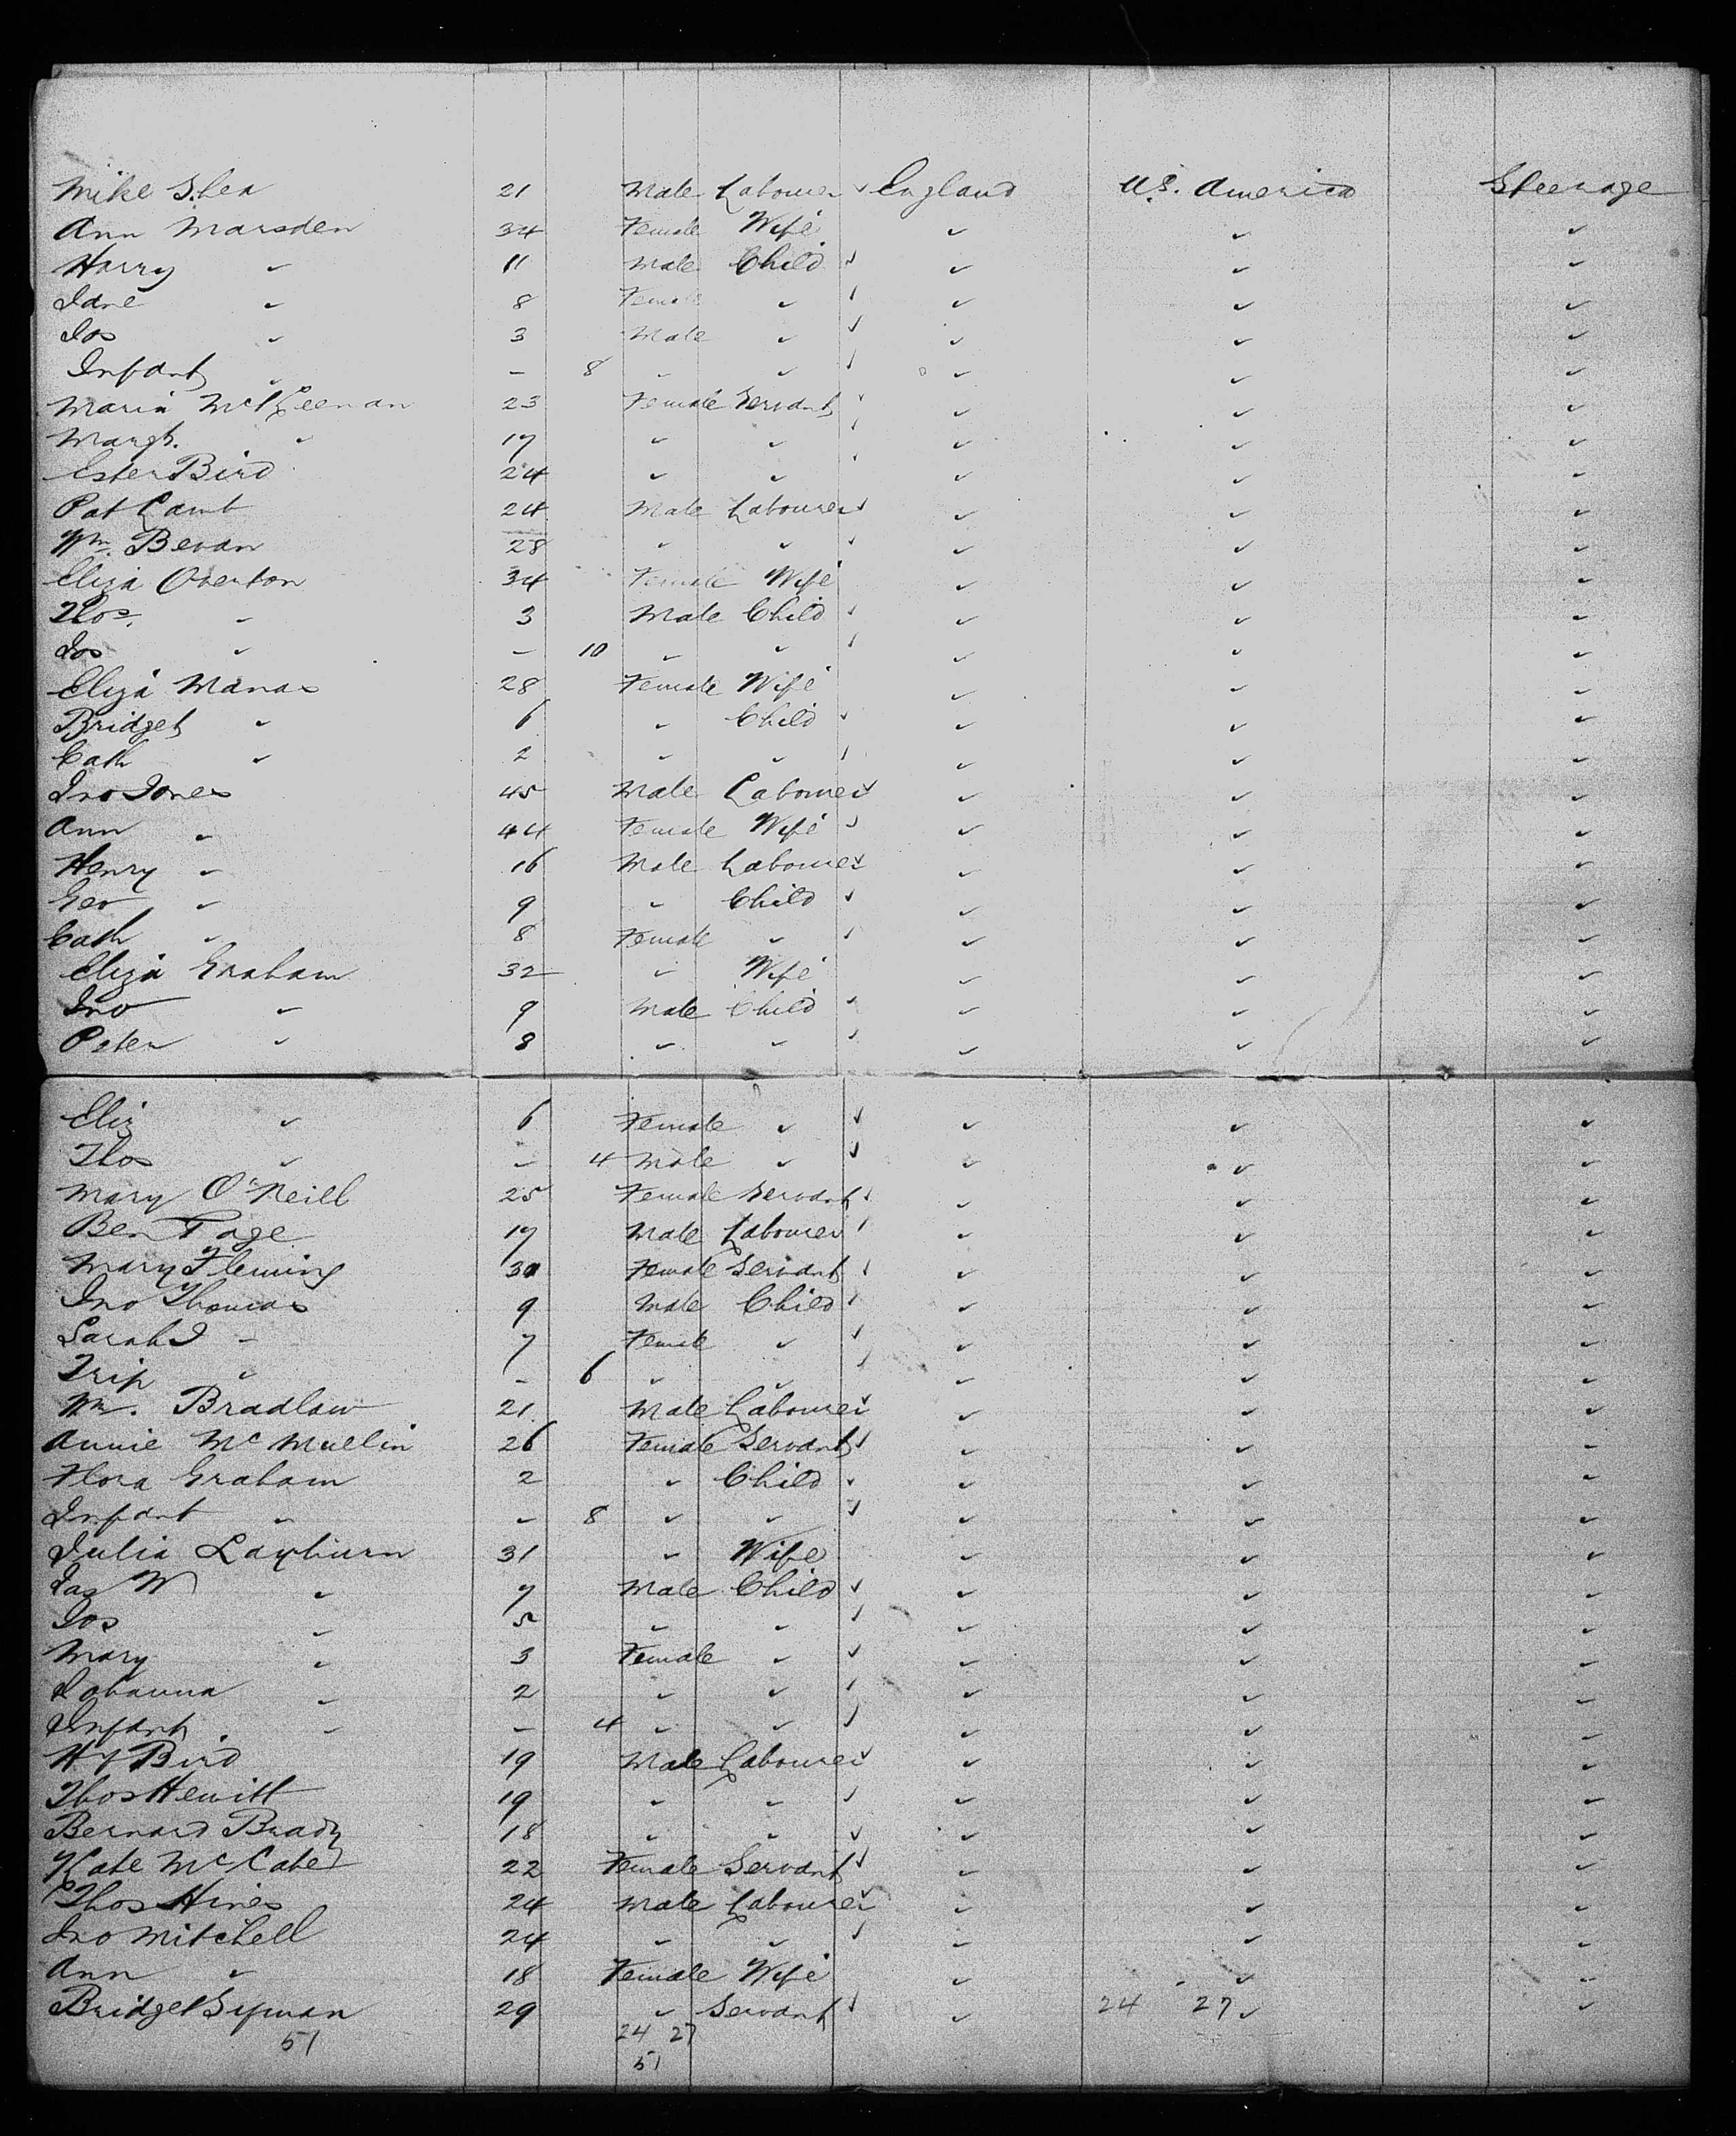 Mike Shea 21 Male Labourer ✓ England U.S. America Steerage
Ann Marsden 34 Female Wife ✓ ✓ ✓
Harry ✓ 11 Male Child ✓ ✓ ✓ ✓
Jane ✓ 8 Female ✓ ✓ ✓ ✓ ✓
Jos ✓ 3 Male ✓ ✓ ✓ ✓ ✓
Infant ✓ - 8 ✓ ✓ ✓ ✓ ✓ ✓
Maria McKeenan 23 Female Servant ✓ ✓ ✓ ✓
Margt. ✓ 17 ✓ ✓ ✓ ✓ ✓ ✓
Ester Bird 24 ✓ ✓ ✓ ✓ ✓ ✓
Pat Lamb 24 Male Labourer ✓ ✓ ✓ ✓
Wm. Bevan 28 ✓ ✓ ✓ ✓ ✓ ✓
Eliza Overton 34 Female Wife ✓ ✓ ✓
Thos. ✓ 3 Male Child ✓ ✓ ✓ ✓
Jos ✓ - 10 ✓ ✓ ✓ ✓ ✓ ✓
Eliza Manas 28 Female Wife ✓ ✓ ✓
Bridget ✓ 6 ✓ Child ✓ ✓ ✓ ✓
Cath ✓ 2 ✓ ✓ ✓ ✓ ✓ ✓
Jno Jones 45 Male Labourer ✓ ✓ ✓ ✓
Ann ✓ 44 Female Wife ✓ ✓ ✓ ✓
Henry ✓ 16 Male Labourer ✓ ✓ ✓ ✓
Geo ✓ 9 ✓ Child ✓ ✓ ✓ ✓
Cath ✓ 8 Female ✓ ✓ ✓ ✓ ✓
Eliza Graham 32 ✓ Wife ✓ ✓ ✓
Jno ✓ 9 Male Child ✓ ✓ ✓ ✓
Peter ✓ 8 ✓ ✓ ✓ ✓ ✓ ✓
Eliz ✓ 6 Female ✓ ✓ ✓ ✓ ✓
Thos ✓ - 4 Male ✓ ✓ ✓ ✓ ✓
Mary O'Neill 25 Female Servant ✓ ✓ ✓ ✓
Ben Page 17 Male Labourer ✓ ✓ ✓ ✓
Mary Fleming 30 Female Servant ✓ ✓ ✓ ✓
Jno Thomas 9 Male Child ✓ ✓ ✓ ✓
Sarah J - 7 Female ✓ ✓ ✓ ✓ ✓
Trip ✓ - 6 ✓ ✓ ✓ ✓ ✓ ✓
Wm. Bradlaw 21 Male Labourer ✓ ✓ ✓ ✓
Annie McMullin 26 Female Servant ✓ ✓ ✓ ✓
Flora Graham 2 ✓ Child ✓ ✓ ✓ ✓
Infant ✓ - 8 ✓ ✓ ✓ ✓ ✓ ✓
Julia Layburn 31 ✓ Wife ✓ ✓ ✓
Jas W ✓ 7 Male Child ✓ ✓ ✓ ✓
Jos ✓ 5 ✓ ✓ ✓ ✓ ✓ ✓
Mary ✓ 3 Female ✓ ✓ ✓ ✓ ✓
Johanna ✓ 2 ✓ ✓ ✓ ✓ ✓ ✓
Infant ✓ - 4 ✓ ✓ ✓ ✓ ✓ ✓
Hy Bird 19 Male Labourer ✓ ✓ ✓ ✓
Thos Hewitt 19 ✓ ✓ ✓ ✓ ✓ ✓
Bernard Brady 18 ✓ ✓ ✓ ✓ ✓ ✓
Kate McCabe 22 Female Servant ✓ ✓ ✓ ✓
Thos Hines 24 Male Labourer ✓ ✓ ✓ ✓
Jno Mitchell 24 ✓ ✓ ✓ ✓ ✓ ✓
Ann ✓ 18 Female Wife ✓ ✓ ✓
Bridget 29 ✓ Servant ✓ ✓ 24 27 ✓ ✓
51 24 27
51